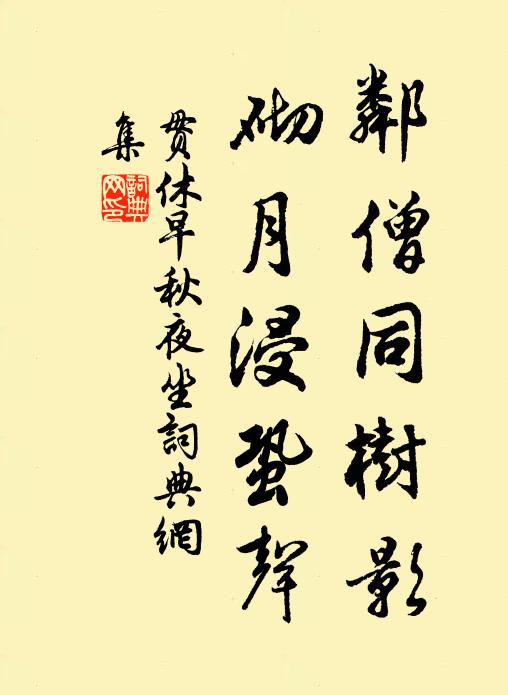 鄰僧同樹影
砌月浸蛩聲
貫休早秋夜坐詞典網
集
詞典網印